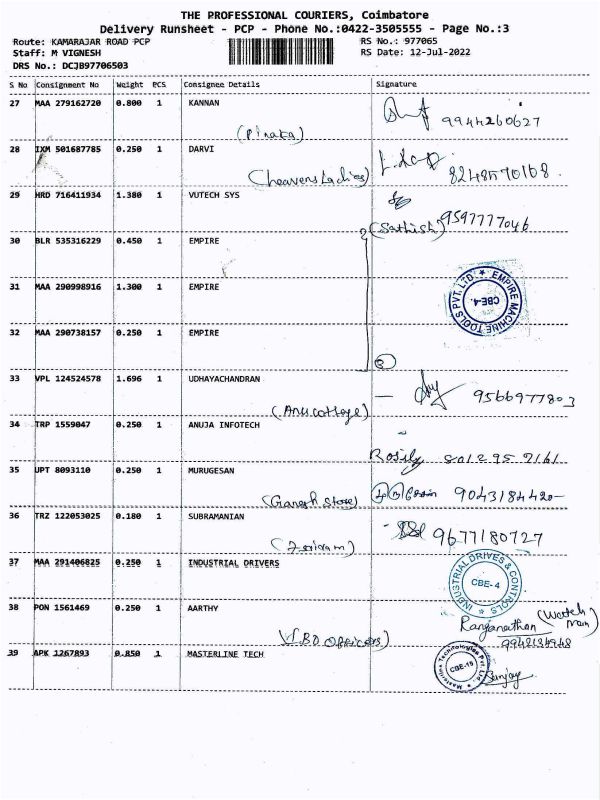 THE PROFESSIONAL COURIERS, Coimbatore
Delivery Runsheet - PCP - Phone No.:0422-3505555 - Page No.:3
Route: KAMARAJAR ROAD PCP RS No.: 977065
Staff: M VIGNESH RS Date: 12-Jul-2022
DRS No.: DCJB97706503
S No Consignment No Weight PCS Consignee Details Signature
27 MAA 279162720 0.800 1 KANNAN
9944260627
(Pinaka)
28 IXM 501687785 0.250 1 DARVI
8248570168
(heavens Ladies)
29 HRD 716411934 1.380 1 VUTECH SYS
(Sathish) 9597777046
30 BLR 535316229 0.450 1 EMPIRE
31 MAA 290998916 1.300 1 EMPIRE
EMPIRE MACHINE TOOLS PVT. LTD. ★
CBE-4.
32 MAA 290738157 0.250 1 EMPIRE
3
33 VPL 124524578 1.696 1 UDHAYACHANDRAN
9566977803
(Anu cottage)
34 TRP 1559047 0.250 1 ANUJA INFOTECH
Rosily 801295 7161
35 UPT 8093110 0.250 1 MURUGESAN
(Ganesh Store) 9043184420
36 TRZ 122053025 0.180 1 SUBRAMANIAN
9677180727
37 MAA 291406825 0.250 1 INDUSTRIAL DRIVERS
INDUSTRIAL DRIVES & CONTROLS ★
CBE-4
38 PON 1561469 0.250 1 AARTHY
Ranganathan (Watch man)
(LBD Officers) 9942134948
39 APK 1267893 0.850 1 MASTERLINE TECH
Masterline Technologies Pvt. Ltd. ★
CBE-15
Sanjay